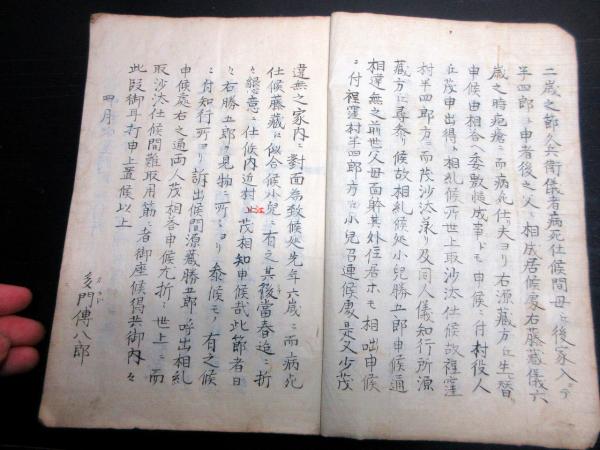 二歳之節久兵衛儀者病死仕候間母江後家入ニテ
半四郎ト申者後之父ニ相成居候処右藤蔵儀六
歳之時疱瘡ニ而病死仕夫ヨリ右源蔵方江生替
申候由相咄委敷様成事ドモ申候ニ付村役人
江茂申出得ト相糺候所世上取沙汰仕候故程窪
村半四郎方ニ而茂沙汰承り及同人儀知行所源
蔵方江尋参り候故相糺候処小児勝五郎申候通
相違無之前世父母面躰其外住居ホモ相咄申候
ニ付程窪村半四郎方江小児召連候処是又少茂
違無之家内ニ対面為致候処先年六歳ニ而病死
仕候藤蔵ニ似合候小児ニ有之其後当春迄ニ折
々懇意ニ仕候内近村江茂相知申候哉此節者日
々右勝五郎ヲ見物ニ所々ヨリ参候モノ有之候
ニ付知行所ヨリ訴出候間源蔵勝五郎呼出相糺
申候処右之通両人茂相答申候尤折々世上ニ而
取沙汰仕候間難取用筋ニ者御座候得共御内々
此段御耳打申上置候以上
四月
多門傳八郎